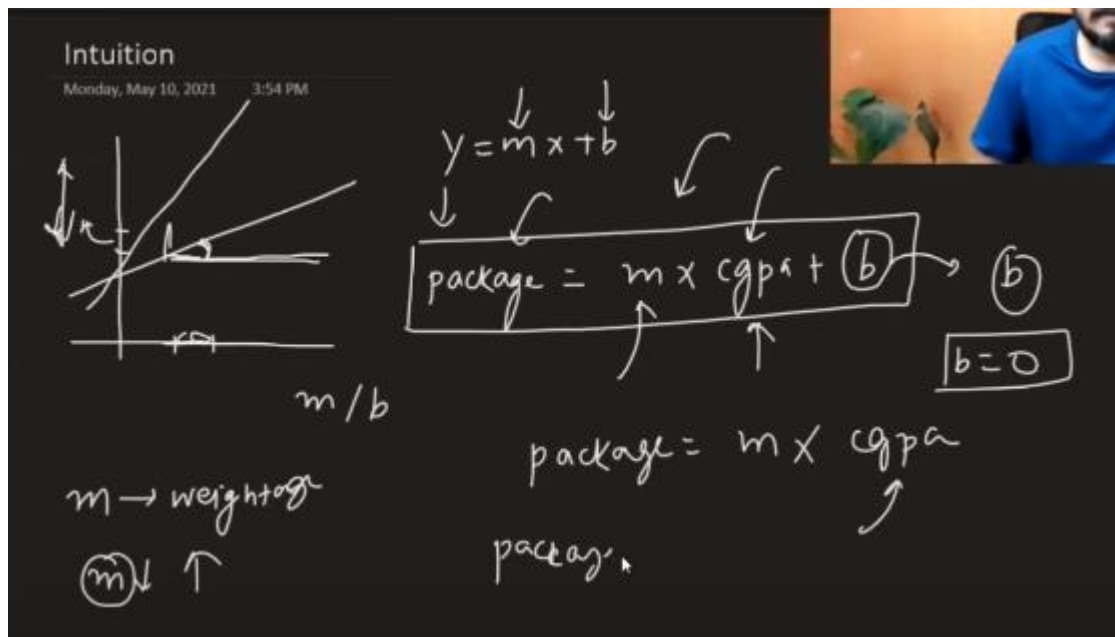 Intuition
Monday, May 10, 2021 3:54 PM
y = mx + b
package = m x cgpa + b
b
b = 0
m/b
package = m x cgpa
m → weightage
m↓ ↑
packag